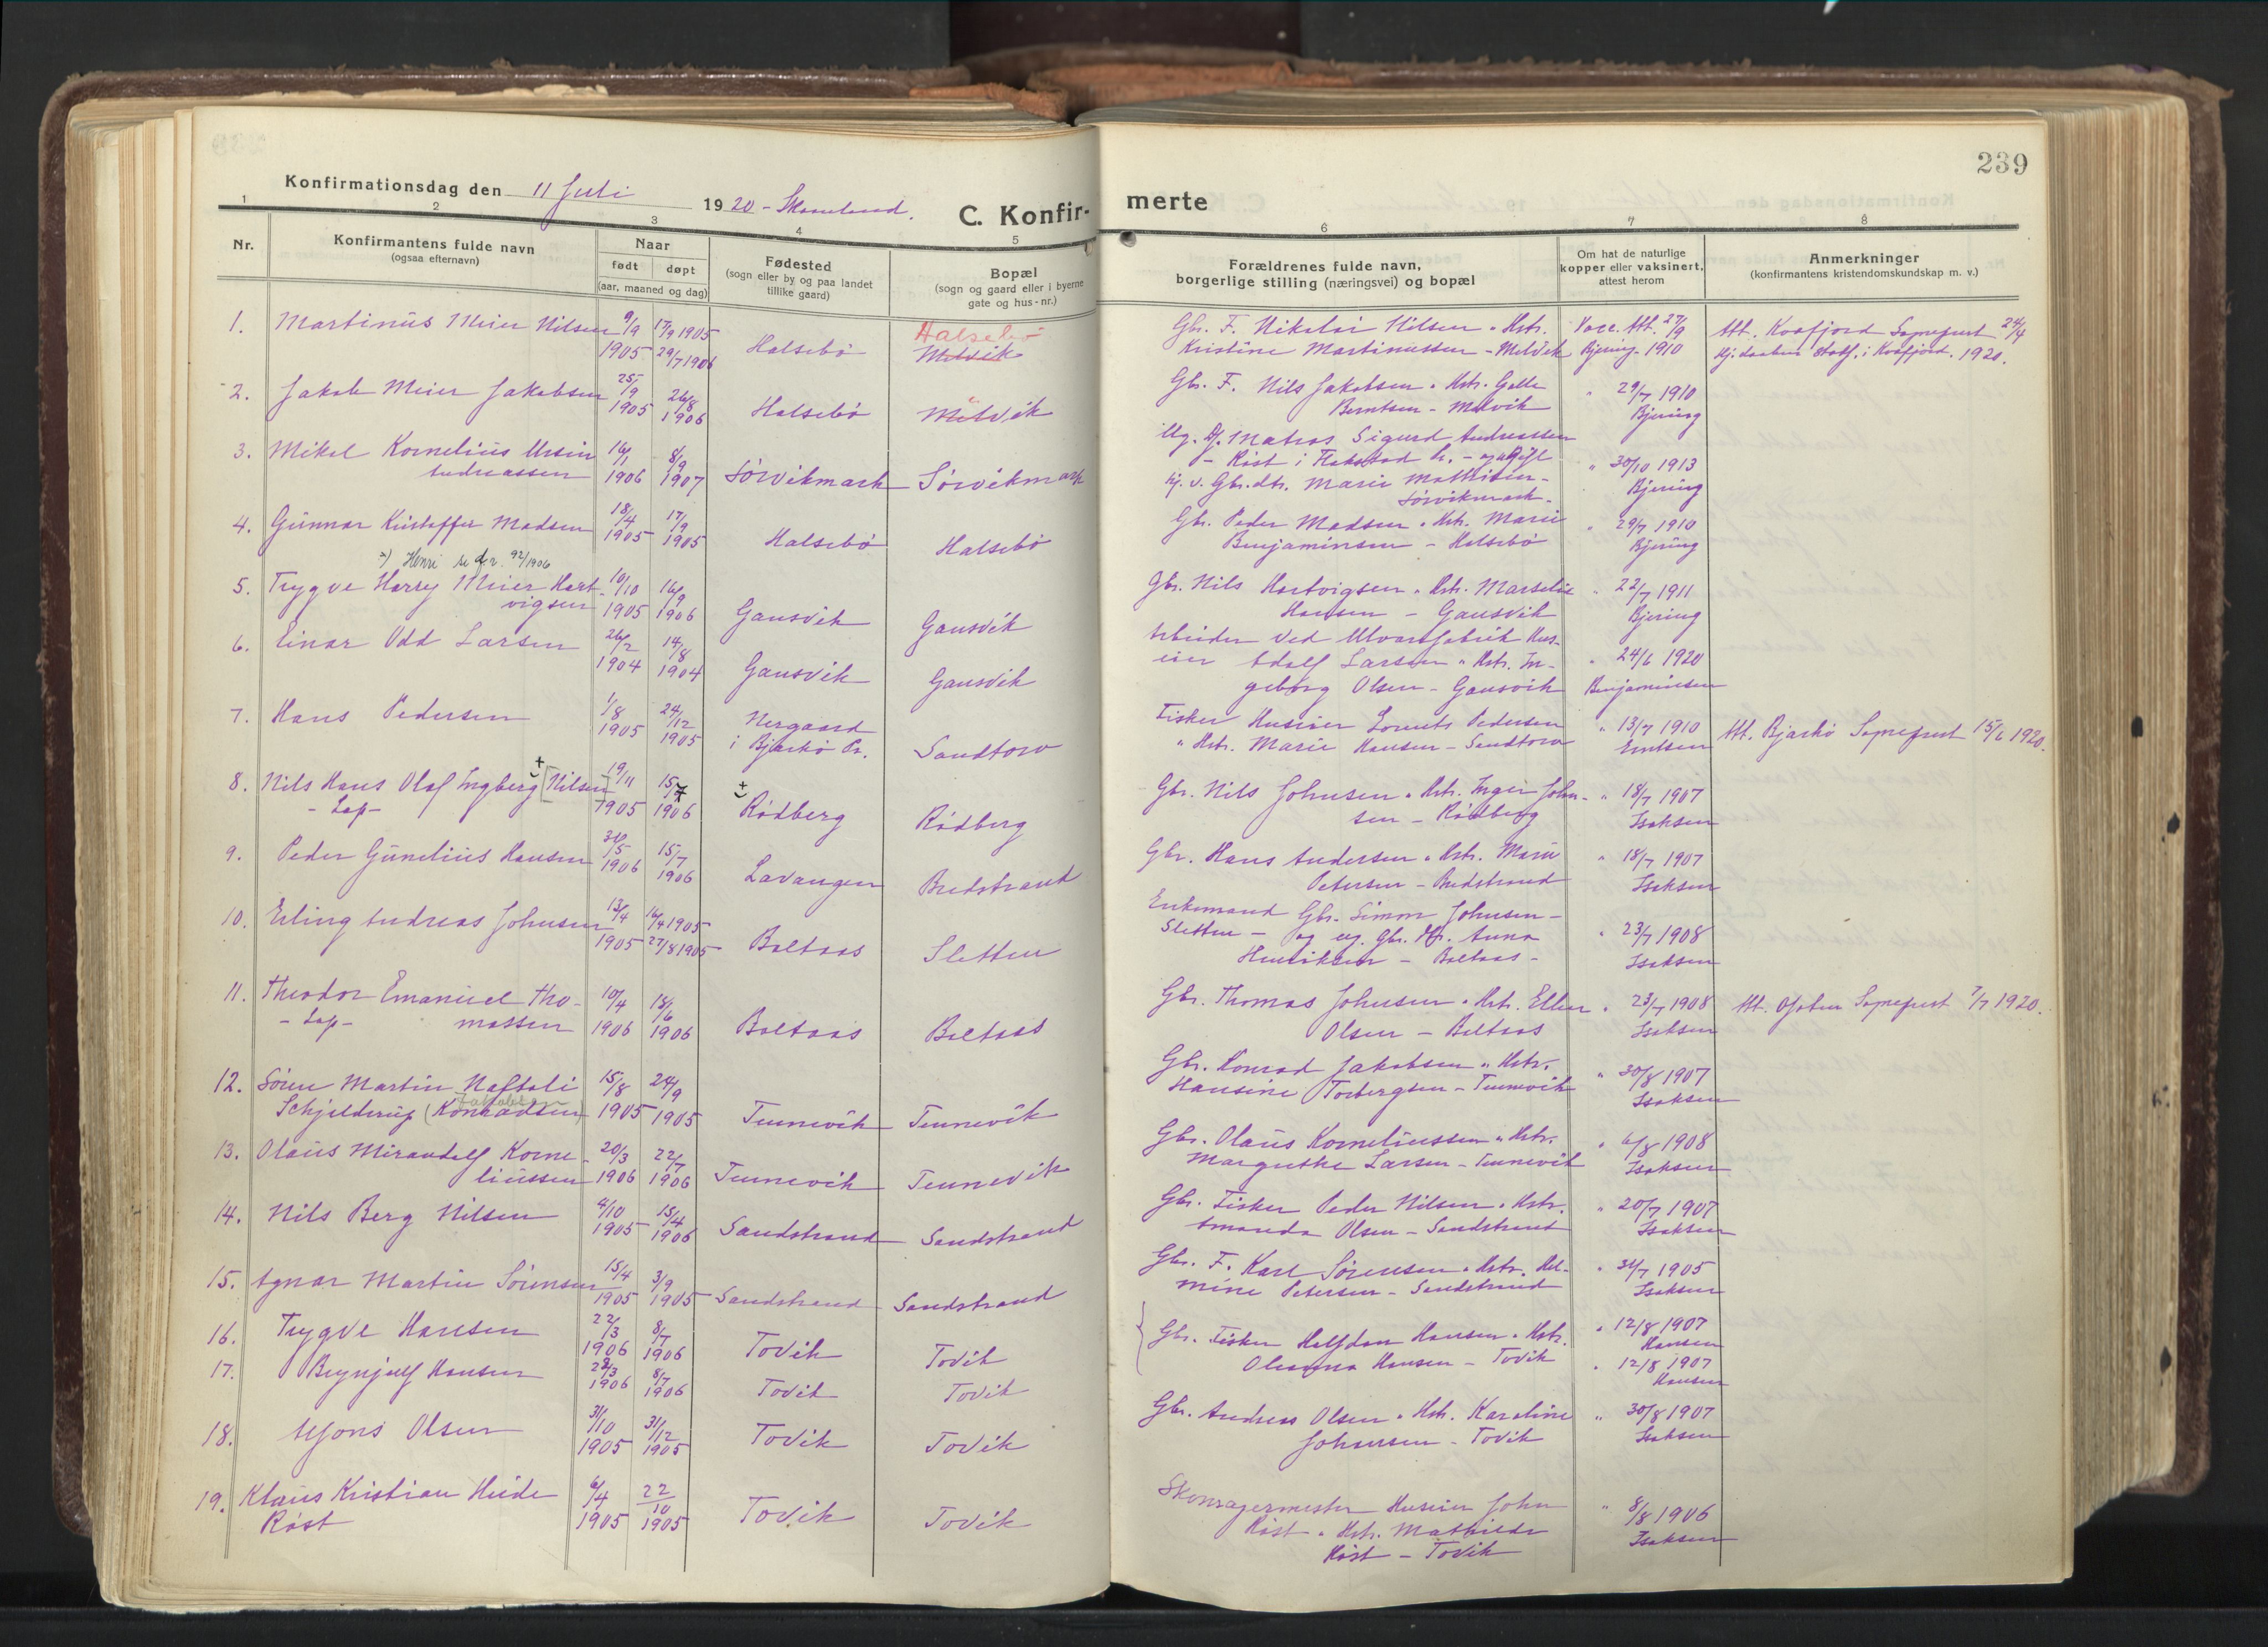 239
Konfirmationsdag den 11 Juli 1920 - Skaanland.
C. Konfirmerte
1 2 3 4 5 6 7 8
Nr.
Konfirmantens fulde navn
(ogsaa efternavn)
Naar
født døpt
(aar, maaned og dag)
Fødested
(sogn eller by og paa landet
tillike gaard)
Bopæl
(sogn og gaard eller i byerne
gate og hus-nr.)
Forældrenes fulde navn,
borgerlige stilling (næringsvei) og bopæl
Om hat de naturlige
kopper eller vaksinert,
attest herom
Anmerkninger
(konfirmantens kristendomskundskap m. v.)
1. Martinus Meier Nilsen 9/9 1905 17/9 1905 29/7 1906 Halsebø Halsebø Melvik
Gbr. F. Nikolai Nilsen " Hstr.
Kristine Martinussen - Melvik
Vacc. Att. 27/9
Bjering - 1910
Att. Kvæfjord Sogneprest 24/4
1920.
2. Jakob Meier Jakobsen 25/9 1905 26/8 1906 Halsebø Melvik
Gbr. F. Nils Jakobsen " Hstr.
Berntsen - Melvik
" 29/7 1910
Bjering
3. Mikal Kornelius Ursin
Andreassen 16/1 1906 8/9 1907 Sørvikmark Sørvikmark
Ug. Matros Sigurd Andreassen
- Røst i
Gbr. dtr. Marie Mathisen -
Sørvikmark.
" 30/10 1913
Bjering
4. Gunnar Kristoffer Madsen 18/4 1905 17/9 1905 Halsebø Halsebø
Gbr. Peder Madsen " Hstr. Marie
Benjaminsen - Halsebø
" 29/7 1910
Bjering
x) Henri se 92/1906
5. Trygve Harry Meier Hart-
vigsen 10/10 1905 16/9 1906 Gausvik Gausvik
Gbr. Nils Hartvigsen " Hstr. Marselie
Hansen - Gausvik
" 22/7 1911
Bjering
6. Einar Odd Larsen 26/2 1904 14/8 1904 Gausvik Gausvik
Arbeider ved Ulvarefabrik Hus-
eier Adolf Larsen " Hstr. In-
geborg Olsen - Gausvik
" 24/6 1920
Benjaminsen
7. Hans Pedersen 1/8 1905 24/12 1905 Nergaard
i Bjarkø Pr. Sandtorv
Fisker Huseier Lorents Pedersen
" Hstr. Marie Hansen - Sandtorv
" 13/7 1910
Att. Bjarkø Sogneprest 15/6 1920.
8. Nils Hans Olaf Ingberg [Nilsen]
- Lap - 19/11 1905 15/7 1906 Rødberg Rødberg
Gbr. Nils Johnsen " Hstr. Inger John-
sen - Rødberg
" 18/7 1907
Isaksen
9. Peder Gunelius Hansen 30/5 1906 15/7 1906 Lavangen Bredstrand
Gbr. Hans Andersen " Hstr. Marie
Petersen - Bredstrand
" 18/7 1907
Isaksen
10. Erling Andreas Johnsen 13/4 1905 16/4 1905 27/8 1905 Boltaas Sletten
Enkemand Gbr. Simon Johnsen -
Sletten - og ug. Gbr. dtr. Anna
Henriksen - Boltaas -
" 23/7 1908
Isaksen
11. Theodor Emanuel Tho-
- Lap - massen 10/4 1906 18/6 1906 Boltaas Boltaas
Gbr. Thomas Johnsen " Hstr. Ellen
Olsen - Boltaas
" 23/7 1908
Isaksen
Att. Ofoten Sogneprest 7/7 1920.
12. Søren Martin Naftali
Schjelderup (Konradsen) Jakobsen 15/8 1905 24/9 1905 Tennevik Tennevik
Gbr. Konrad Jakobsen " Hstr.
Hansine Torbergsen - Tennevik
" 30/8 1907
Isaksen
13. Olaus Mirandolf Korne-
liussen 20/3 1906 22/7 1906 Tennevik Tennevik
Gbr. Olaus Korneliussen " Hstr.
Margrethe Larsen - Tennevik
" 6/8 1908
Isaksen
14. Nils Berg Nilsen 4/10 1905 15/4 1906 Sandstrand Sandstrand
Gbr. Fisker Peder Nilsen " Hstr.
Amanda Olsen - Sandstrand
" 20/7 1907
Isaksen
15. Agnar Martin Sørensen 15/4 1905 3/9 1905 Sandstrand Sandstrand
Gbr. F. Karl Sørensen " Hstr. Hel-
mine Petersen - Sandstrand
" 31/7 1905
Isaksen
16. Trygve Hansen 22/3 1906 8/7 1906 Tovik Tovik
Gbr. Fisker Halfdan Hansen " Hstr.
Oleanna Hansen - Tovik
" 12/8 1907
Hansen
17. Brynjulf Hansen 22/3 1906 8/7 1906 Tovik Tovik
" 12/8 1907
Hansen
18. Alfons Olsen 31/10 1905 31/12 1905 Tovik Tovik
Gbr. Andreas Olsen " Hstr. Karoline
Johansen - Tovik
" 30/8 1907
Isaksen
19. Klaus Kristian Heide
Røst 6/4 1905 22/10 1905 Tovik Tovik
Skomagermester Huseier John
Røst " Hstr. Mathilde
Røst - Tovik
" 8/8 1906
Isaksen